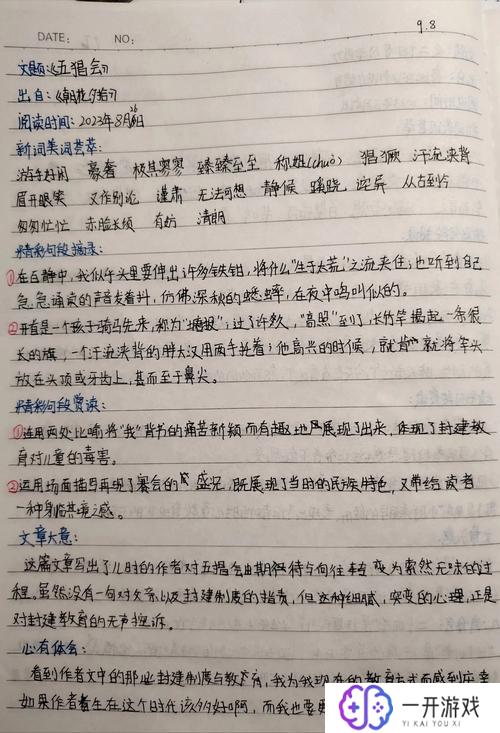 9.8
DATE: NO:
文题:《五猖会》
出自:《朝花夕拾》
阅读时间:2023年8月26日
新词美词荟萃:
游手好闲 豪奢 极其寥寥 臻臻至至 称娖(chuò) 猖獗 汗流浃背
眉开眼笑 又作别论 谨肃 无法可想 静候 蹊跷 诧异 从古到今
匆匆忙忙 赤脸长须 有妨 清朗
精彩句段摘录:
①在百静中,我似乎头里要伸出许多铁钳,将什么“生于太荒”之流夹住;也听到自己
急急诵读的声音发着抖,仿佛深秋的蟋蟀,在夜中鸣叫似的。
②开首是一个孩子骑马先来,称为“塘报”;过了许久,“高照”到了,长竹竿揭起一条很
长的旗,一个汗流浃背的胖大汉用两手托着;他高兴的时候,就肯就将竿头
放在头顶或牙齿上,甚而至于鼻尖。
精彩句段赏读:
①连用两处比喻将“我”背书的痛苦新颖而有趣地展现了出来,体现了封建教
育对儿童的毒害。
②运用场面描写再现了赛会的盛况,既展现了当时的民族特色,又带给读者
一种身临其境之感。
文章大意:
这篇文章写出了儿时的作者对五猖会由期待与向往转变为索然无味的过
程。虽然没有一句对父亲以及封建制度的指责,但这种细腻,突变的心理,正是
对封建教育的无声控诉。
心有体会:
看到作者文中的那些封建制度与教育,我为我现在的教育方式而感到庆幸
如果作者生在这个时代该多好啊,而我也要
一开游戏
YI KAI YOU XI